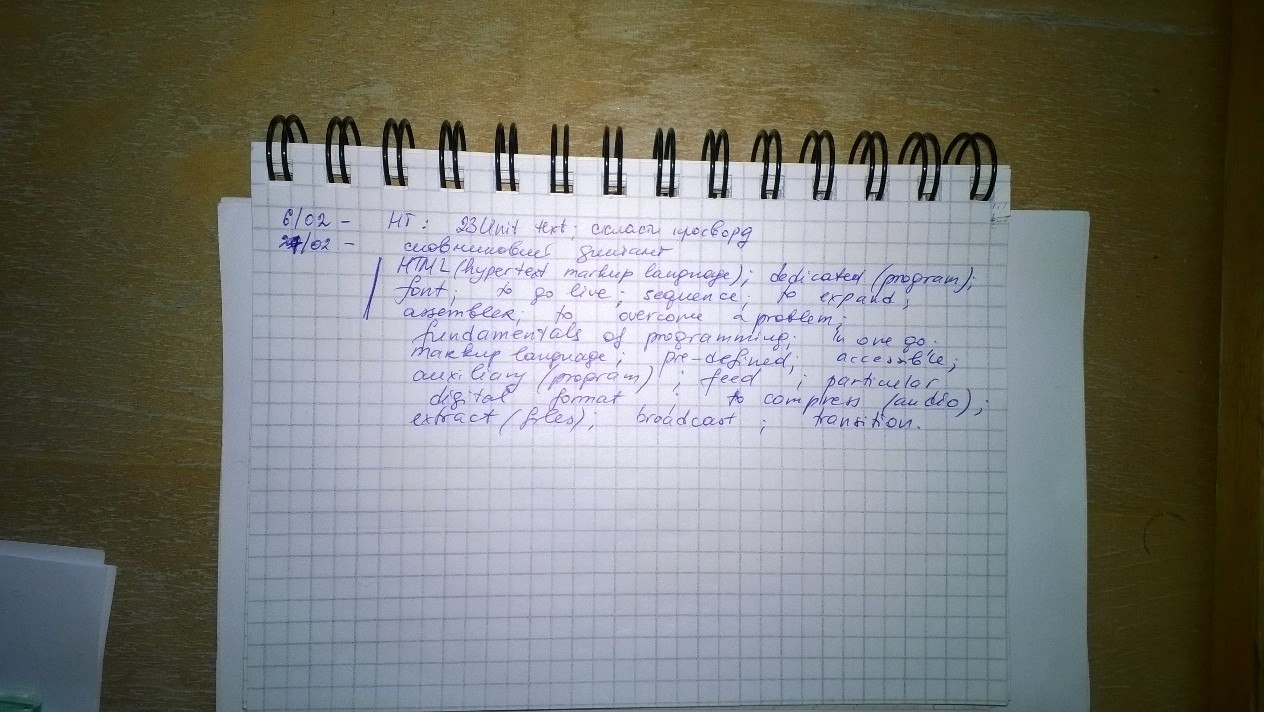 6/02 - HT: 23 Unit text; скласти кросворд
27/02 - словниковий диктант
HTML (hypertext markup language); dedicated (program);
font; to go live; sequence; to expand;
assembler; to overcome a problem;
fundamentals of programming; in one go.
markup language; pre-defined; accessible;
auxiliary (program); feed; particular
digital format to compress (audio);
extract (files); broadcast; transition.